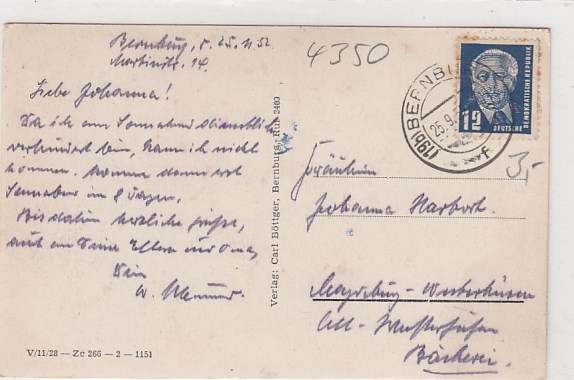 Bernburg, d. 25.11.52
Martinstr. 14.
4350
Liebe Johanna!
Da ich am Sonnabend dienstlich
verhindert bin, kann ich nicht
kommen. Komme dann erst
Sonnabend in 8 Tagen.
Bis dahin herzliche Grüße,
auch an Deine Eltern und Oma,
Dein
W.
V/11/28 — Zc 266 — 2 — 1151
Verlag: Carl Böttger, Bernburg, Ruf 3403
BERNBURG
(19b)
f
12
DEUTSCHE
DEMOKRATISCHE REPUBLIK
3,-
Fräulein
Johanna Harbort.
Magdeburg-Westerhüsen
Alt-Westerhüsen
Bäckerei.